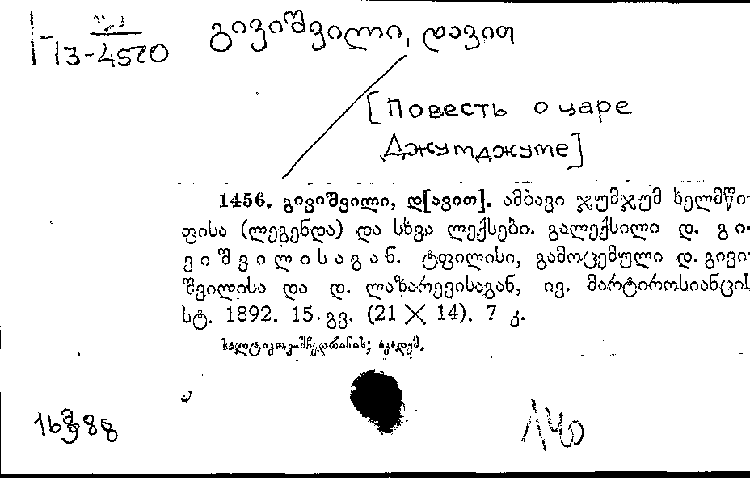 13-4520
გივიშვილი, დავით
[Повесть о царе
Джумджуме]
1456. გივიშვილი, დ[ავით]. ამბავი ჯუმჯუმ ხელმწი-
ფისა (ლეგენდა) და სხვა ლექსები. გალექსილი დ. გი-
ვიშვილისაგან. ტფილისი, გამოცემული დ. გივი-
შვილისა და დ. ლაზარევისაგან, ივ. მარტიროსიანცის
სტ. 1892. 15 გვ. (21 × 14). 7 კ.
140